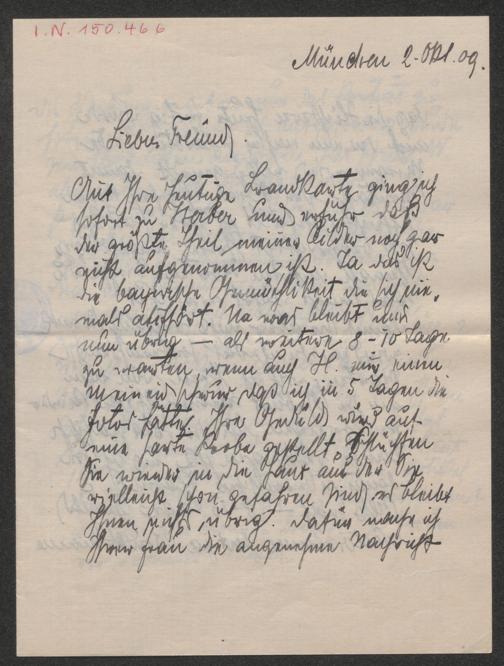 I.N. 150.466
München 2. Okt. 09.
Lieber Freund,
Auf Ihre heutige Brandkarte ging ich
sofort zu Herber und erfuhr daß
der größte Theil meiner Bilder noch gar
nicht aufgenommen ist. Ja das ist
die bayrische Gemüthlichkeit die sich nie-
mals
Na was bleibt uns
nun übrig — als weitere 8-10 Tage
zu warten, wenn auch H. mir einen
Meineid schwur daß ich in 5 Tagen die
Fotos hätte. Ihre Geduld wird auf
eine harte Probe gestellt. Schlüpfen
Sie wieder in die Haut aus der Sie
vielleicht schon gefahren sind, es bleibt
Ihnen nichts übrig. Dafür mache ich
Ihrer Frau die angenehme Nachricht